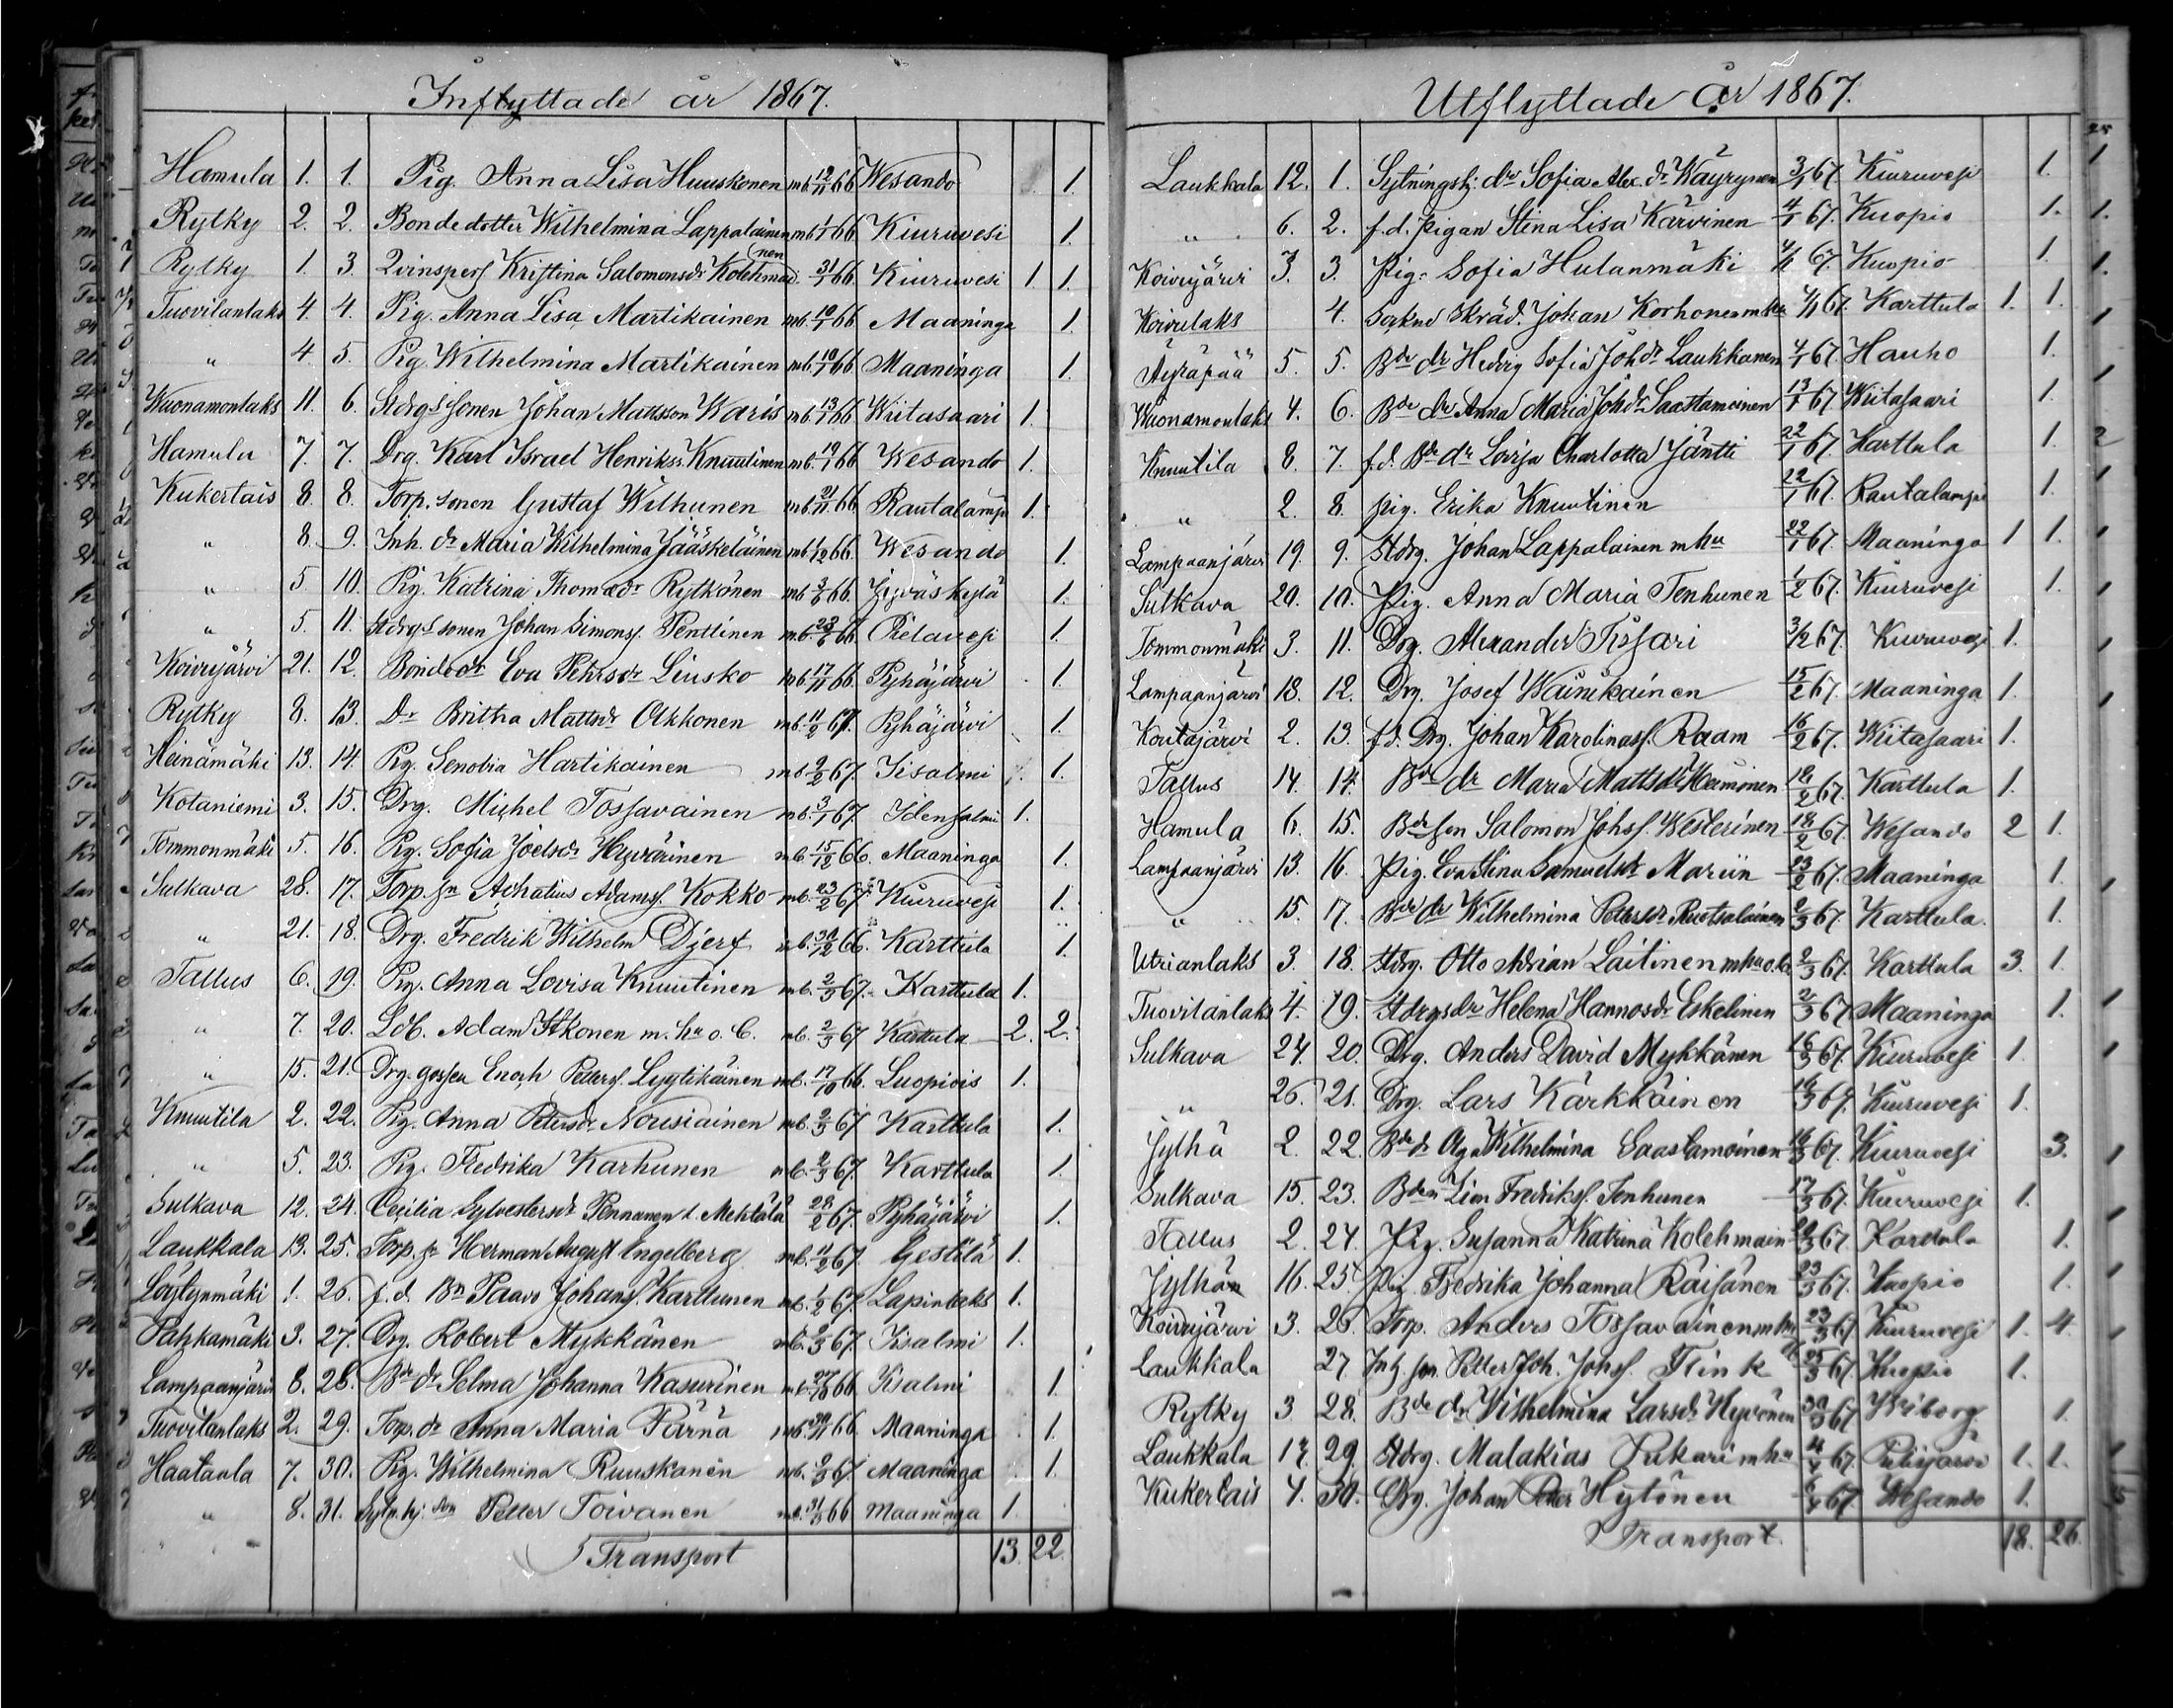 Inflyttade år 1867.
Hamula 1. 1. Pig. Anna Lisa Huuskonen mb 12/11 66 Wesando 1.
Rytky 2. 2. Bondedotter Wilhelmina Lappalainen mb 1/1 66 Kiuruvesi 1.
Rytky 1. 3. Qvinspers Kristina Salomonsdr Kolehmainen 31/1 66. Kiuruvesi 1 1.
Tuovilanlaks 4. 4. Pig. Anna Lisa Martikainen mb. 10/1 66 Maaninga 1.
" 4 5. Pig. Wilhelmina Martikainen mb. 10/1 66 Maaninga 1.
Wuonamonlaks 11. 6. Stdrgs sonen Johan Mattsson Waris mb 13/1 66 Wiitasaari 1.
Hamula 7. 7. Drg. Karl Israel Henrikss. Knuutinen mb. 19/1 66 Wesando 1.
Kukertais 8. 8. Torp. sonen Gustaf Wilhunen mb. 21/11 66 Rautalamp 1.
" 8. 9. Inh. dr Maria Wilhelmina Jääskeläinen mb 1/12 66. Wesando 1.
" 5 10. Pig. Katrina Thomasdr Rytkönen mb 3/6 66. Jyväskylä 1.
" 5. 11. Stdrgs sonen Johan Simonss. Penttinen mb. 66 Pielavesi 1.
Koivujärvi 21. 12. Bondedr Eva Petersdr Liusko mb 17/11 66. Pyhäjärvi 1.
Rytky 8. 13. Dr Britha Mattsdr Olkkonen mb. 11/2 67. Pyhäjärvi 1.
Heinämäki 13. 14. Pig. Senobia Hartikainen mb 9/2 67. Iisalmi 1.
Kotaniemi 3. 15. Drg. Michel Tossavainen mb. 3/1 67 Idensalmi 1.
Tommonmäki 5. 16. Pig. Sofia Joelsdr Hyvärinen mb 15/12 66. Maaninga 1.
Sulkava 28. 17. Torp. sn Achatius Adamss. Kokko mb. 23/2 67. Kiuruvesi 1.
" 21. 18. Drg. Fredrik Wilhelm Djerf mb. 30/12 66. Karttula 1.
Tallus 6. 19. Pig. Anna Lovisa Knuutinen mb. 2/3 67. Karttula 1.
" 7. 20. Ldb. Adam Itkonen m. hu o. b. mb. 2/3 67 Karttula 2. 2.
" 15. 21. Drg. gossen Enoch Petterss. Lyytikäinen mb. 17/10 66. Luopiois 1.
Knuutila 2. 22. Pig. Anna Petersdr Nousiainen mb. 2/3 67 Karttula 1.
" 5. 23. Pig. Fredrika Karhunen mb. 2/3 67. Karttula 1.
Sulkava 12. 24. Cecilia Sylvestersdr Pennanen t. Mehtälä 28/2 67. Pyhäjärvi 1.
Laukkala 13. 25. Torp. sn Herman August Engelberg mb. 11/2 67 Gestilä 1.
Löytynmäki 1. 26. f. d. Bn Paavo Johans. Karttunen mb. 1/2 67. Lapinlaks 1.
Pahkamäki 3. 27. Drg. Robert Mykkänen mb. 67. Iisalmi 1.
Lampaanjärvi 8. 28. Bde dr Selma Johanna Kasurinen mb. 27/10 66 Iisalmi 1.
Tuovilanlaks 2. 29. Torp. dr Anna Maria Pärnä mb. 66. Maaninga 1.
Haataala 7. 30. Pig. Wilhelmina Ruuskanen mb. 67. Maaninga 1.
" 8. 31. Sytn. hj. son Petter Toivanen mb. 66 Maaninga 1.
Transport 13. 22.
Utflyttade år 1867.
Laukkala 12. 1. Sytningshj. dr Sofia Alex. dr Wäyrynen 3/1 67. Kiuruvesi 1.
" 6. 2. f. d. pigan Stina Lisa Karvinen 4/1 67. Kuopio 1.
Koivujärvi 3. 3. Pig. Sofia Hulanmäki 4/1 67. Kuopio 1.
Koivulaks 4. Sockne skräd. Johan Korhonen m hu 4/1 67. Karttula 1. 1.
Äyräpää 5. 5. Bde dr Hedvig Sofia Johdr Laukkanen 4/1 67. Hauho 1.
Wuonamonlaks 4. 6. Bde dr Anna Maria Johdr Saastamoinen 13/1 67 Wiitasaari 1.
Knuutila 8. 7. f. d. Bde dr Lovisa Charlotta Jäntti 22/1 67. Karttula 1.
" 2. 8. pig. Erika Knuutinen 22/1 67. Rautalampi 1.
Lampaanjärvi 19. 9. Stdrg. Johan Lappalainen m hu 22/1 67. Maaninga 1 1.
Sulkava 20. 10. Pig. Anna Maria Tenhunen 1/2 67. Kiuruvesi 1.
Tommonmäki 3. 11. Drg. Alexander Tissari 3/2 67. Kiuruvesi 1.
Lampaanjärvi 18. 12. Drg. Josef Wäinikäinen 15/2 67. Maaninga 1.
Koutajärvi 2. 13. f. d. Drg. Johan Karolinass. Raam 16/2 67. Wiitasaari 1.
Tallus 14 14. Bde dr Maria Mattsdr Heimonen 18/2 67. Karttula 1.
Hamula 6. 15. Bde son Salomon Johss. Westerinen 18/2 67. Wesando 2 1.
Lampaanjärvi 13. 16. Pig. Eva Stina Samuelsdr Mariin 23/2 67. Maaninga 1.
" 15. 17. Bde dr Wilhelmina Pettersdr Ruotsalainen 2/3 67. Karttula. 1.
Utrianlaks 3. 18. Stdrg. Otto Adrian Laitinen m hu o. b. 2/3 67. Karttula 3. 1.
Tuovilanlaks 4. 19. Stdrgsdr Helena Hannosdr Eskelinen 2/3 67. Maaninga 1.
Sulkava 24. 20. Drg. Anders David Mykkänen 16/3 67. Kiuruvesi 1.
" 26. 21. Drg. Lars Kärkkäinen 16/3 67. Kiuruvesi 1.
Jylhä 2. 22. Bde dr Aga Wilhelmina Saastamoinen 16/3 67. Kiuruvesi 3.
Sulkava 15. 23. Bden Lion Fredrikss. Tenhunen 17/3 67. Kiuruvesi 1.
Tallus 2. 24. Pig. Susanna Katrina Kolehmain 67. Karttula 1.
Jylhän 16. 25. Pig. Fredrika Johanna Räisänen 23/3 67. Kuopio 1.
Koivujärvi 3. 26. Torp. Anders Tossavainen m hu 23/3 67. Kiuruvesi 1. 4.
Laukkala 27. Inh. son. Petter Joh. Johss. Flink 25/3 67. Kuopio 1.
Rytky 3 28. Bde dr Wilhelmina Larsdr Hyvönen 30/3 67 Wiborg 1.
Laukkala 17. 29. Stdrg. Malakias Pukari m hu 4/4 67. 1. 1.
Kukertais 4. 30. Drg. Johan Petter Hytönen 6/4 67. Wesando 1.
Transport 18. 26.